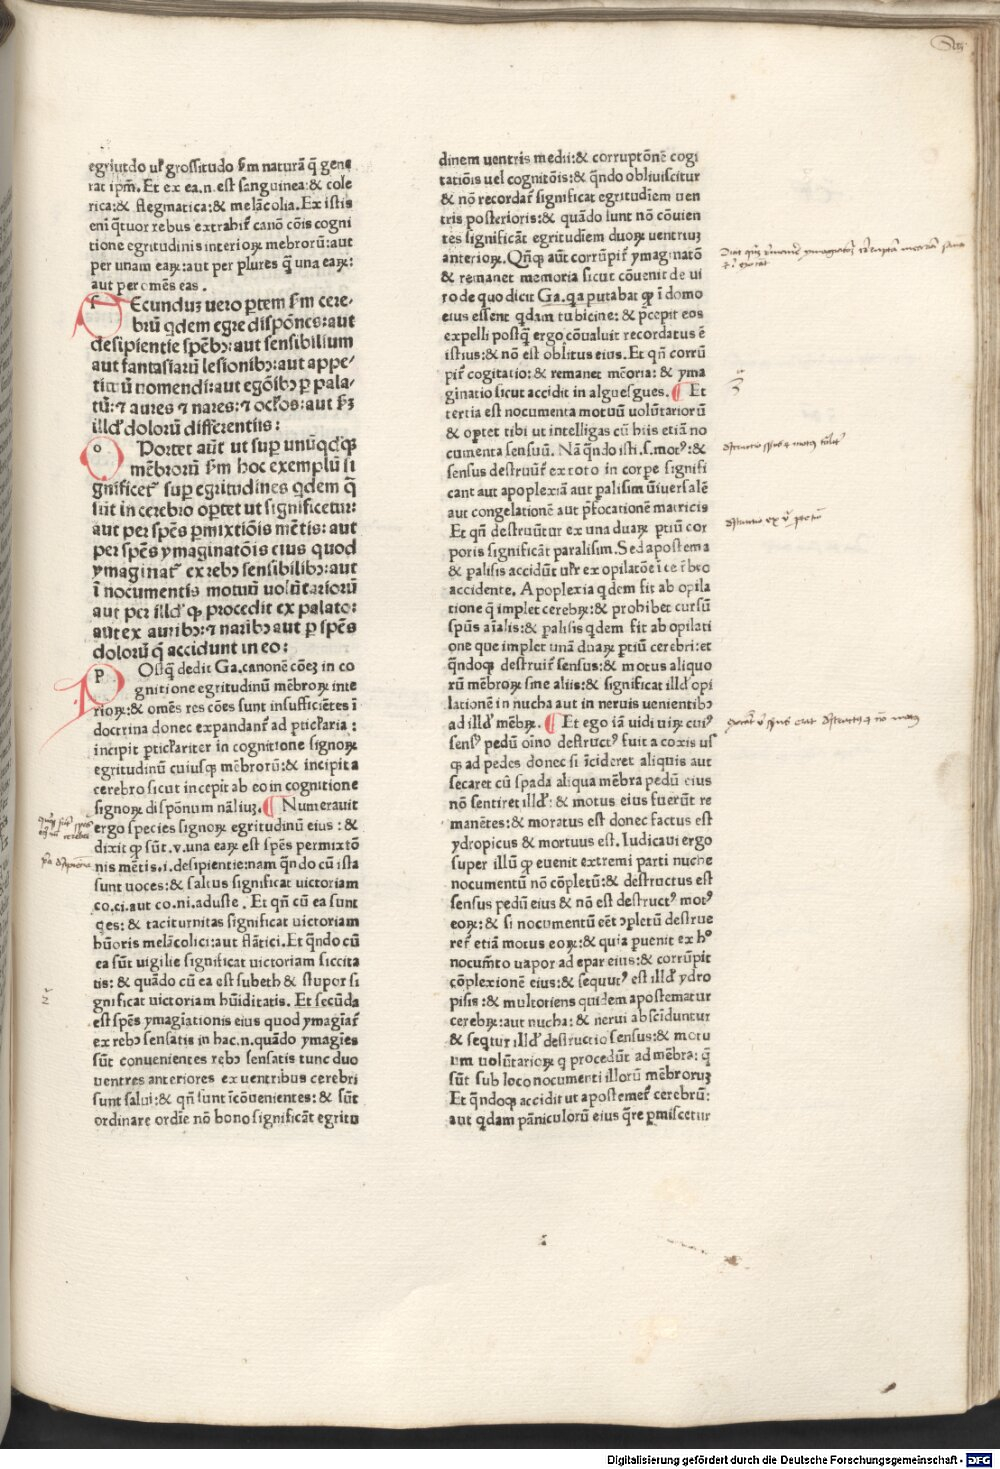 egriutdo ul' grossitudo s'm naturā q̄ gene
rat ip̄m. Et ex ea .n. est sanguinea: & cole
rica: & flegmatica: & melācolia. Ex istis
eni q̄tuor rebus extrahit̄ canō cōis cogni
tione egritudinis interioꝝ mebrorū: aut
per unam eaꝝ: aut per plures q̄ una eaꝝ:
aut per omēs eas.
SEcunduꝫ uero ꝑtem s'm cere-
brū qdem egre dispōnes: aut
desipientie spēbꝫ: aut sensibilium
aut fantasiarū lesionibꝫ: aut appe-
titū nomendi: aut egōibꝫ ꝑ pala-
tū: ⁊ aures ⁊ nares: ⁊ oc'los: aut
illd' dolorū differentiis:
OPortet aūt ut suꝑ unūqd'qꝫ
mēbrorū s'm hoc exemplū si
gnificet' suꝑ egritudines qdem q̄
sūt in cerebro oꝑtet ut significetur:
aut per spēs ꝑmixtiōis mētis: aut
per spēs ymaginatōis eius quod
ymaginat' ex rebꝫ sensibilibꝫ: aut
ī nocumentis motuū uolūtariorū
aut per illd' qꝫ procedit ex palato:
aut ex auribꝫ: ⁊ naribꝫ aut ꝑ spēs
dolorū q̄ accidunt in eo:
POstq̄ dedit Ga. canonē cōeꝫ in co
gnitione egritudinū mēbroꝝ inte
rioꝝ: & omēs res cōes sunt insufficiētes ī
doctrina donec expandant̄ ad ꝑtic'laria:
incipit ꝑtic'lariter in cognitione signoꝝ
egritudinū cuiusqꝫ mēbrorū: & incipit a
cerebro sicut incepit ab eo in cognitione
signoꝝ dispōnum nāliuꝫ. ¶ Numerauit
ergo species signoꝝ egritudinū eius: &
dixit qꝫ sūt .v. una eaꝝ est spēs permixtō
nis mētis .i. desipientie: nam q̄ndo cū ista
sunt uoces: & saltus significat uictoriam
co.ci. aut co.ni. aduste. Et qn̄ cū ea sunt
ges: & taciturnitas significat uictoriam
hūoris melācolici: aut flātici. Et q̄ndo cū
ea sūt uigilie significat uictoriam siccita
tis: & quādo cū ea est subeth & stupor si
gnificat uictoriam hūiditatis. Et secūda
est spēs ymagīationis eius quod ymagīat̄
ex rebꝫ sensatis in hac .n. quādo ymagīes
sūt conuenientes rebꝫ sensatis tunc duo
uentres anteriores ex uentribus cerebri
sunt salui: & qn̄ sunt īcōuenientes: & sūt
ordinare ordīe nō bono significāt egritu
dinem uentris medii: & corruptōnē cogi
tatiōis uel cognitōis: & q̄ndo obliuiscitur
& nō recordat̄ significat egritudīem uen
tris posterioris: & quādo sunt nō cōuien
tes significāt egritudīem duoꝝ uentriuꝫ
anterioꝝ. Qn̄qꝫ aūt corrūpit̄ ymaginatō
& remanet memoria sicut cōuenit de ui
ro de quo dicit Ga. qa putabat qꝫ ī domo
eius essent qdam tubicine: & p̄cepit eos
expelli postq̄ ergo cōualuit recordatus ē
istius: & nō est oblitus eius. Et qn̄ corrū
pit̄ cogitatio: & remanet mēoria: & yma
ginatio sicut accidit in alguesgues. ¶ Et
tertia est nocumenta motuū uolūtariorū
& oꝑtet tibi ut intelligas cū hiis etiā no
cumenta sensuū. Nā q̄ndo isti .s. mot': &
sensus destruūt̄ ex toto in corꝑe signifi
cant aut apoplexiā aut palisim ūiuersalē
aut congelationē aut p̄focationē matricis
Et qn̄ destruūtur ex una duaꝝ ꝑtiū cor
poris significāt paralisim. Sed apostema
& palisis accidūt ul'r ex opilatōe ī cerebro
accidente. Apoplexia qdem fit ab opila
tione q̄ implet cerebꝝ: & prohibet cursū
spūs aīalis: & palisis qdem fit ab opilati
one que implet unā duaꝝ ꝑtiū cerebri: et
q̄ndoqꝫ destruit̄ sensus: & motus aliquo
rū mēbroꝝ sine aliis: & significat illd' opi
lationē in nucha aut in neruis uenientibꝫ
ad illd' mēbꝝ. ¶ Et ego iā uidi uiꝝ cui'
sens' pedū oīno destruct' fuit a coxis us
qꝫ ad pedes donec si īcideret aliquis aut
secaret cū spada aliqua mēbra pedū eius
nō sentiret illd': & motus eius fuerūt re
manētes: & moratus est donec factus est
ydropicus & mortuus est. Iudicaui ergo
super illū qꝫ euenit extremi parti nuche
nocumentū nō cōpletū: & destructus est
sensus pedū eius & nō est destruct' mot'
eoꝝ: & si nocumentū eēt ↄpletū destrue
ret̄ etiā motus eoꝝ: & quia ꝑuenit ex h°
nocum̄to uapor ad epar eius: & corrūpit
cōplexionē eius: & sequut' est illd' ydro
pisis: & multotiens quidem apostematur
cerebꝝ: aut nucha: & nerui abscīduntur
& seqtur illd' destructio sensus: & motu
um uolūtarioꝝ q procedūt ad mēbra: q̄
sūt sub loco nocumenti illorū mēbroruꝫ
Et q̄ndoqꝫ accidit ut apostemet̄ cerebrū:
aut qdam pāniculorū eius q̄re ꝑmiscetur
Digitalisierung gefördert durch die Deutsche Forschungsgemeinschaft - DFG